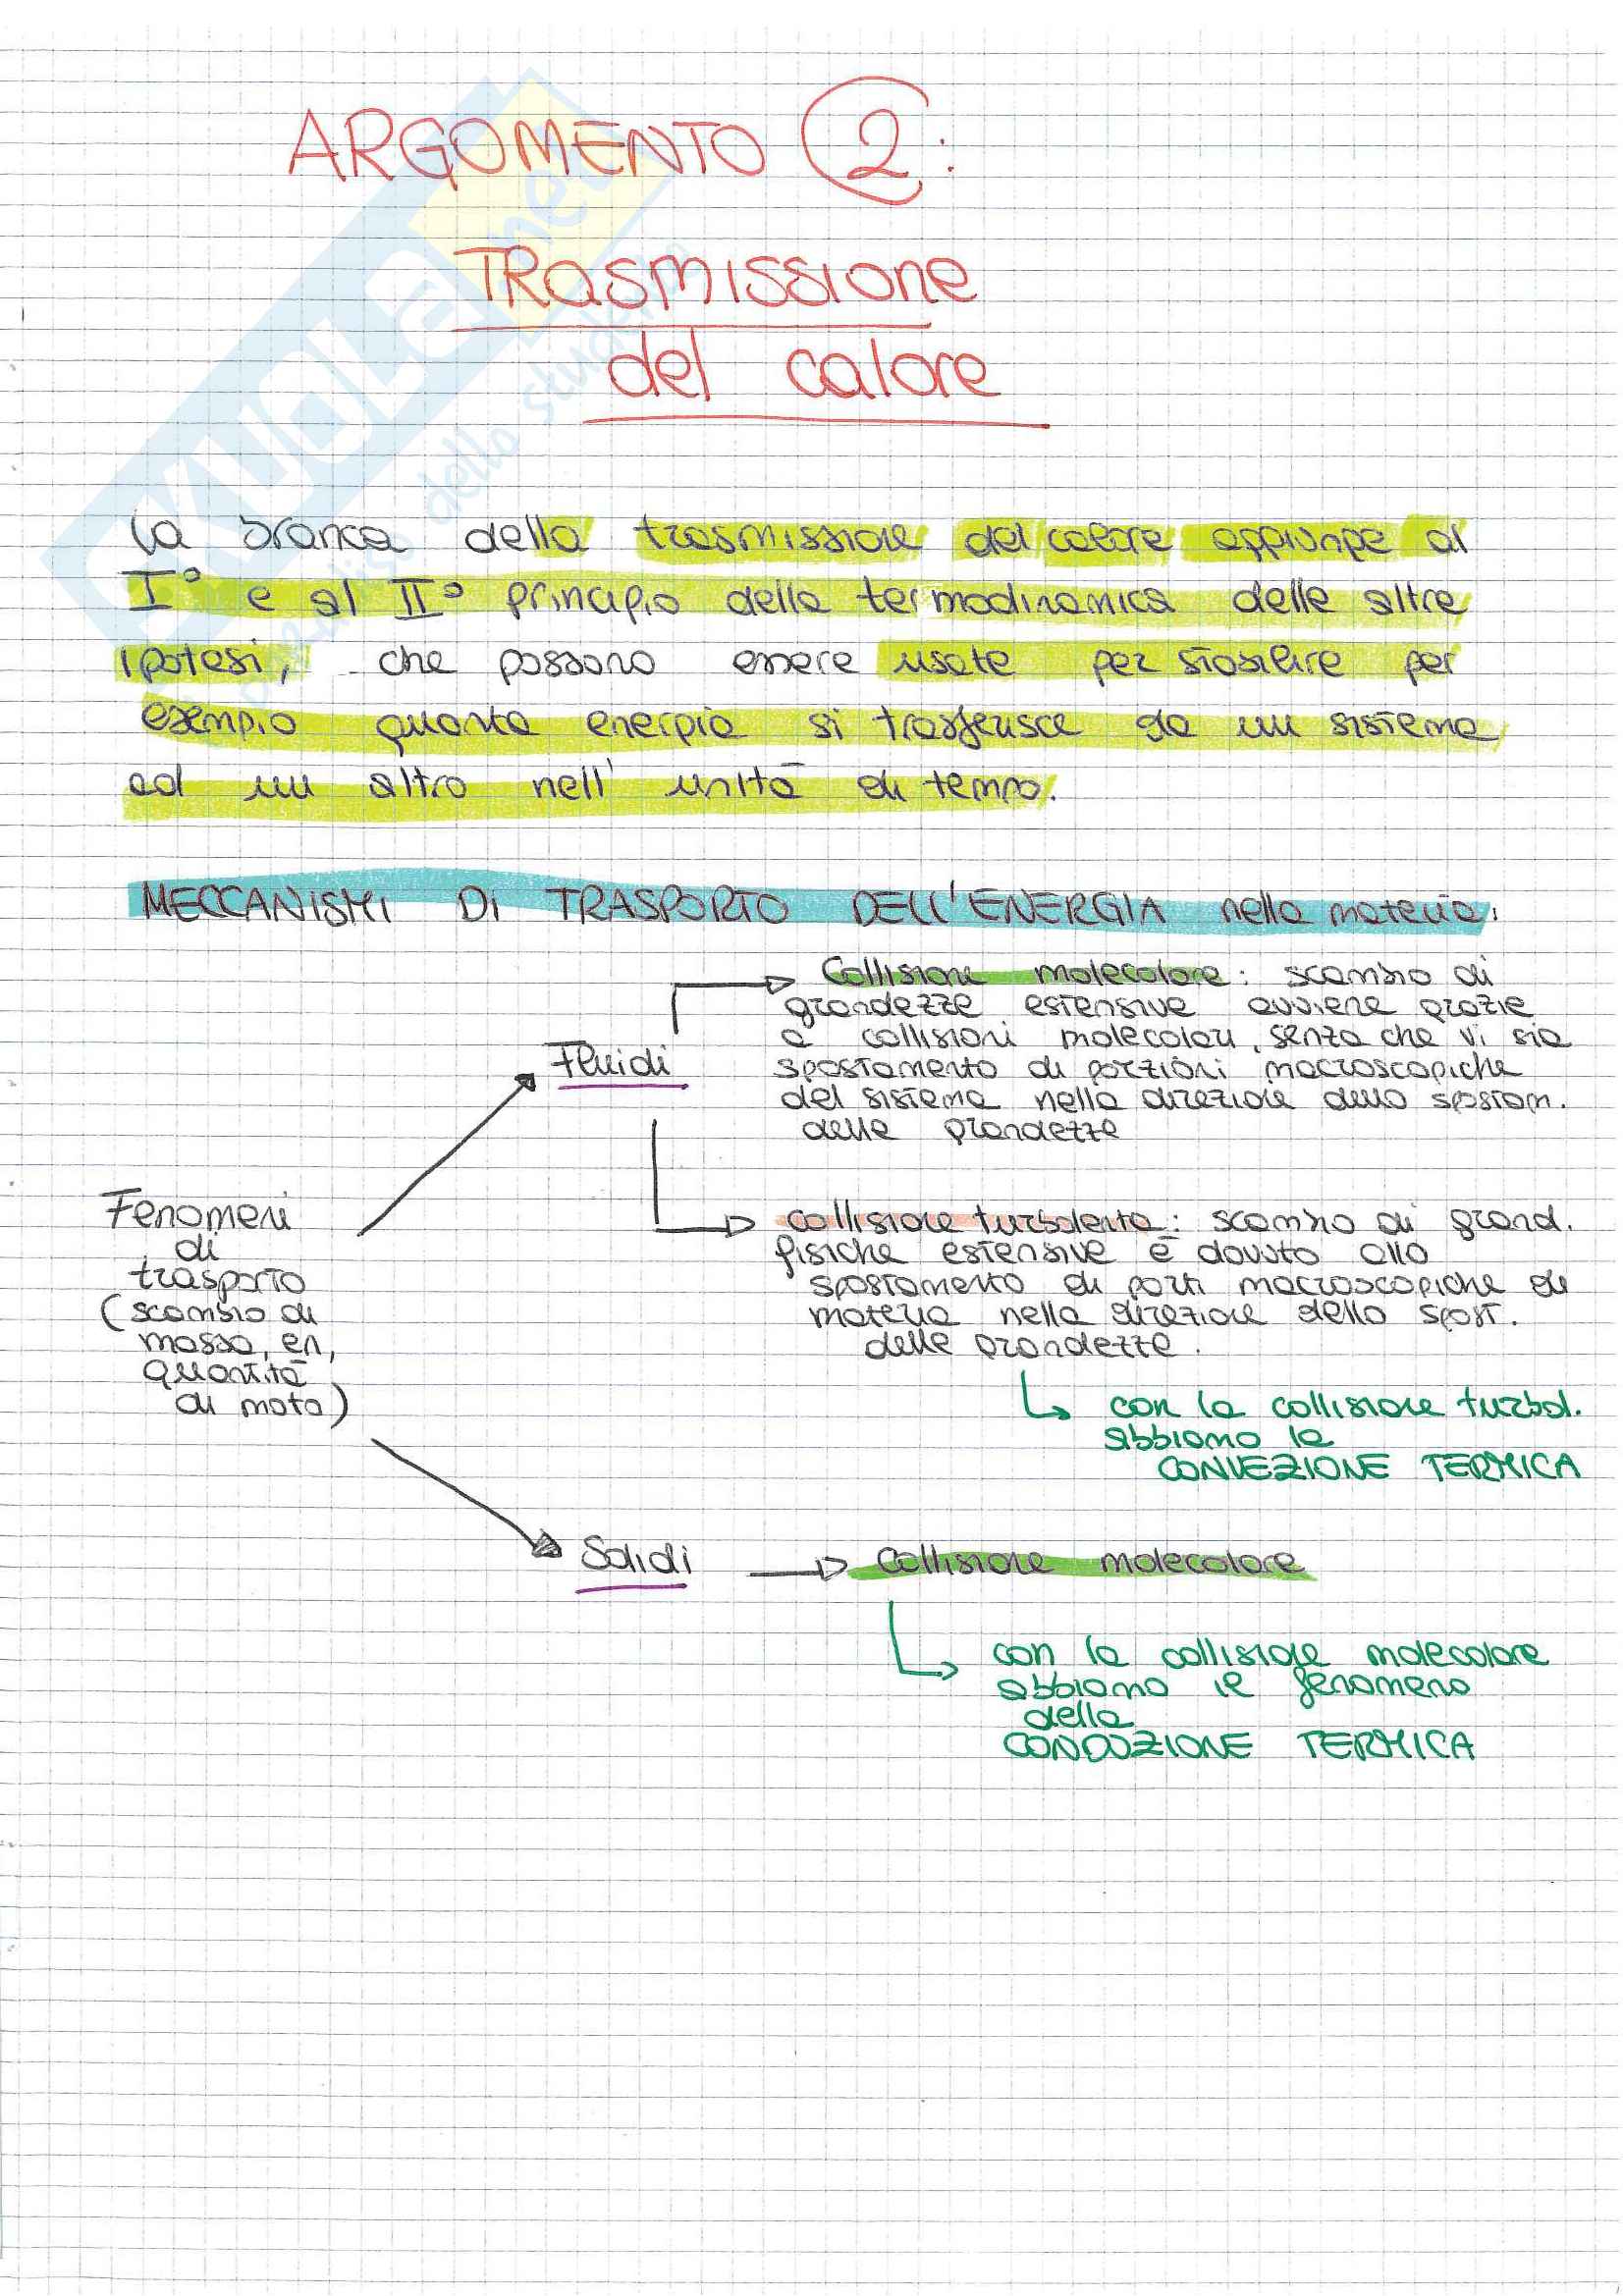 ARGOMENTO 2:
TRASMISSIONE
del calore
La branca della trasmissione del calore aggiunge al
I° e al II° principio della termodinamica delle altre
ipotesi, che possono essere usate per stabilire per
esempio quanta energia si trasferisce da un sistema
ad un altro nell' unità di tempo.
MECCANISMI Di TRASPORTO DELL'ENERGIA nella materia:
Collisione molecolare: scambio di
grandezze estensive avviene grazie
a collisioni molecolari, senza che vi sia
spostamento di porzioni macroscopiche
del sistema nella direzione dello spostam.
delle grandezze
Fluidi
Fenomeni
di
trasporto
(scambio di
massa, en,
quantità
di moto)
collisione turbolenta: scambio di grand.
fisiche estensive è dovuto allo
spostamento di parti macroscopiche di
materia nella direzione dello spost.
delle grandezze.
con la collisione turbol.
abbiamo la
CONVEZIONE TERMICA
Solidi
Collisione molecolare
con la collisione molecolare
abbiamo il fenomeno
della
CONDUZIONE TERMICA